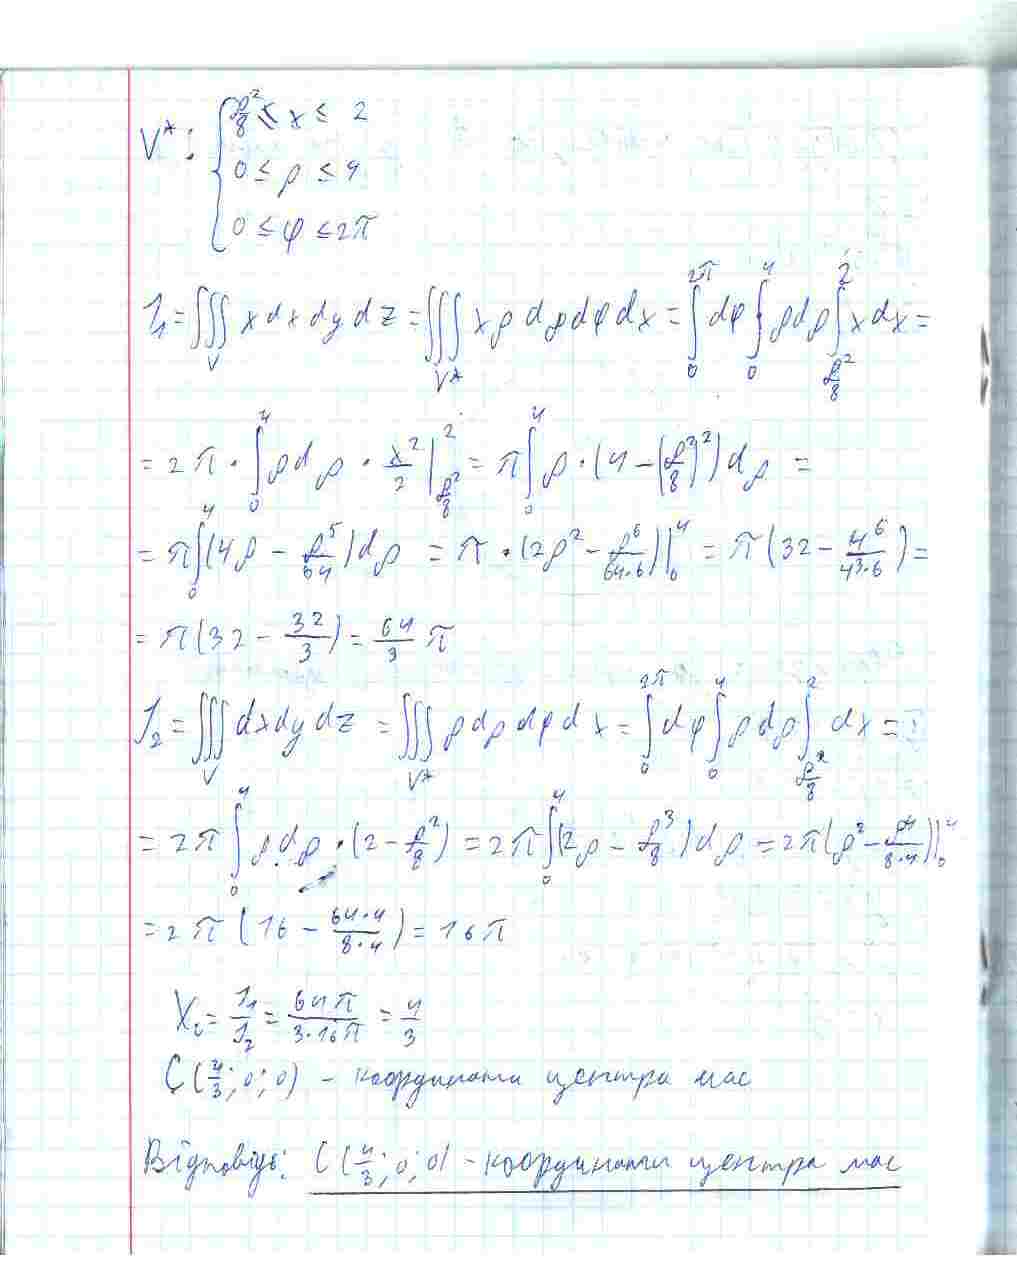 V*: { ρ²/8 ≤ x ≤ 2
0 ≤ ρ ≤ 4
0 ≤ φ ≤ 2π
J₁ = ∭_V x dx dy dz = ∭_V* xρ dρ dφ dx = ∫₀^2π dφ ∫₀^4 ρdρ ∫_{ρ²/8}^2 x dx =
= 2π · ∫₀^4 ρ dρ · x²/2 |_{ρ²/8}^2 = π ∫₀^4 ρ · (4 − (ρ²/8)²) dρ =
= π ∫₀^4 (4ρ − ρ⁵/64) dρ = π · (2ρ² − ρ⁶/(64·6)) |₀^4 = π (32 − 4⁶/(4³·6)) =
= π (32 − 32/3) = 64/3 π
J₂ = ∭_V dx dy dz = ∭_V* ρ dρ dφ dx = ∫₀^2π dφ ∫₀^4 ρ dρ ∫_{ρ²/8}^2 dx =
= 2π ∫₀^4 ρ dρ · (2 − ρ²/8) = 2π ∫₀^4 (2ρ − ρ³/8) dρ = 2π (ρ² − ρ⁴/(8·4)) |₀^4
= 2π (16 − 64·4/(8·4)) = 16π
X_c = J₁/J₂ = 64π/(3·16π) = 4/3
C (4/3; 0; 0) - координати центра мас
Відповідь: C (4/3; 0; 0) - координати центра мас